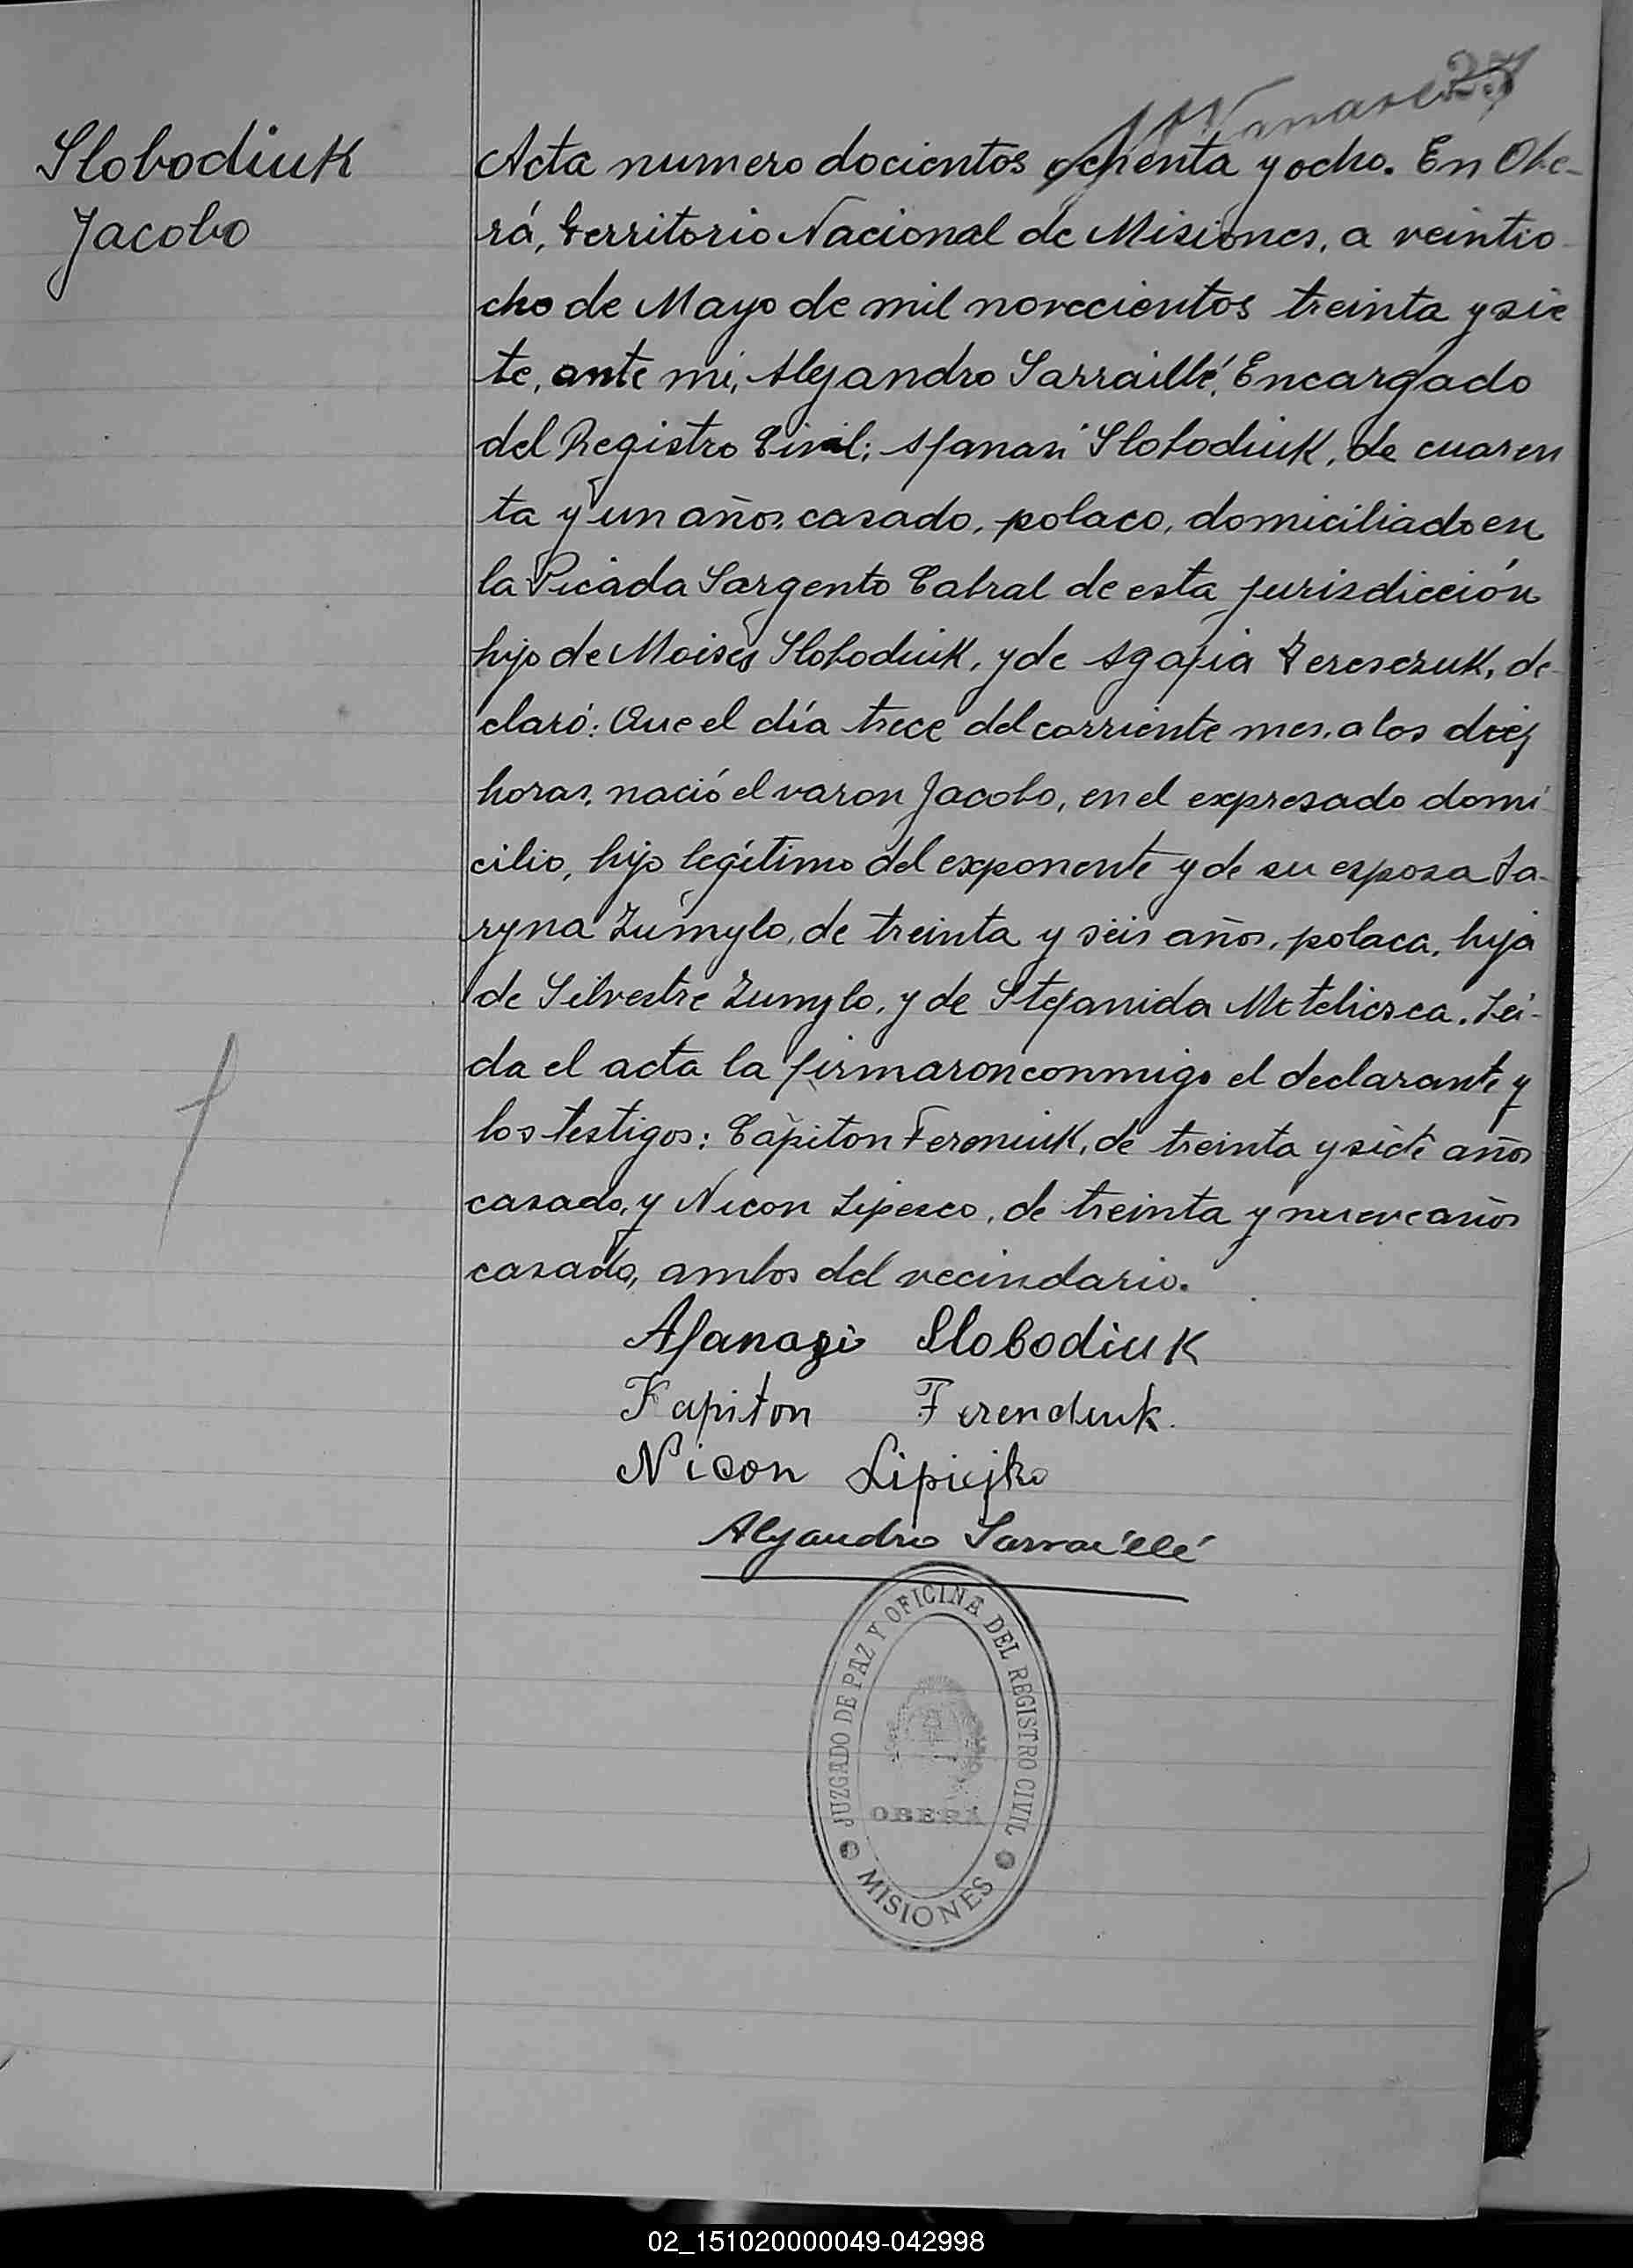 27
Slobodiuk
Jacobo
Acta numero docientos ochenta y ocho. En Obe-
rá, territorio Nacional de Misiones, a veintio
cho de Mayo de mil novecientos treinta y sie
te, ante mi, Alejandro Sarraillé, Encargado
del Registro Civil; Afanasi Slobodiuk, de cuaren
ta y un años, casado, polaco, domiciliado en
la Picada Sargento Cabral de esta jurisdicción
hijo de Moisés Slobodiuk, y de Agafia Tereszuk, de-
claró: Que el día trece del corriente mes, a los diez
horas, nació el varon Jacobo, en el expresado domi
cilio, hijo legítimo del exponente y de su esposa Ia-
ryna Zumylo, de treinta y seis años, polaca, hija
de Silvestre Zumylo, y de Stefanida Meteliesca. Leí-
da el acta la firmaron conmigo el declarante y
los testigos: Capiton Fereniuk, de treinta y siete años
casado, y Nicon Lipesco, de treinta y nueve años
casado, ambos del vecindario.
Afanazi Slobodiuk
Kapiton Ferendiuk.
Nicon Lipiejko
Alejandro Sarraillé
JUZGADO DE PAZ Y OFICINA DEL REGISTRO CIVIL
OBERÁ
MISIONES
02_151020000049-042998